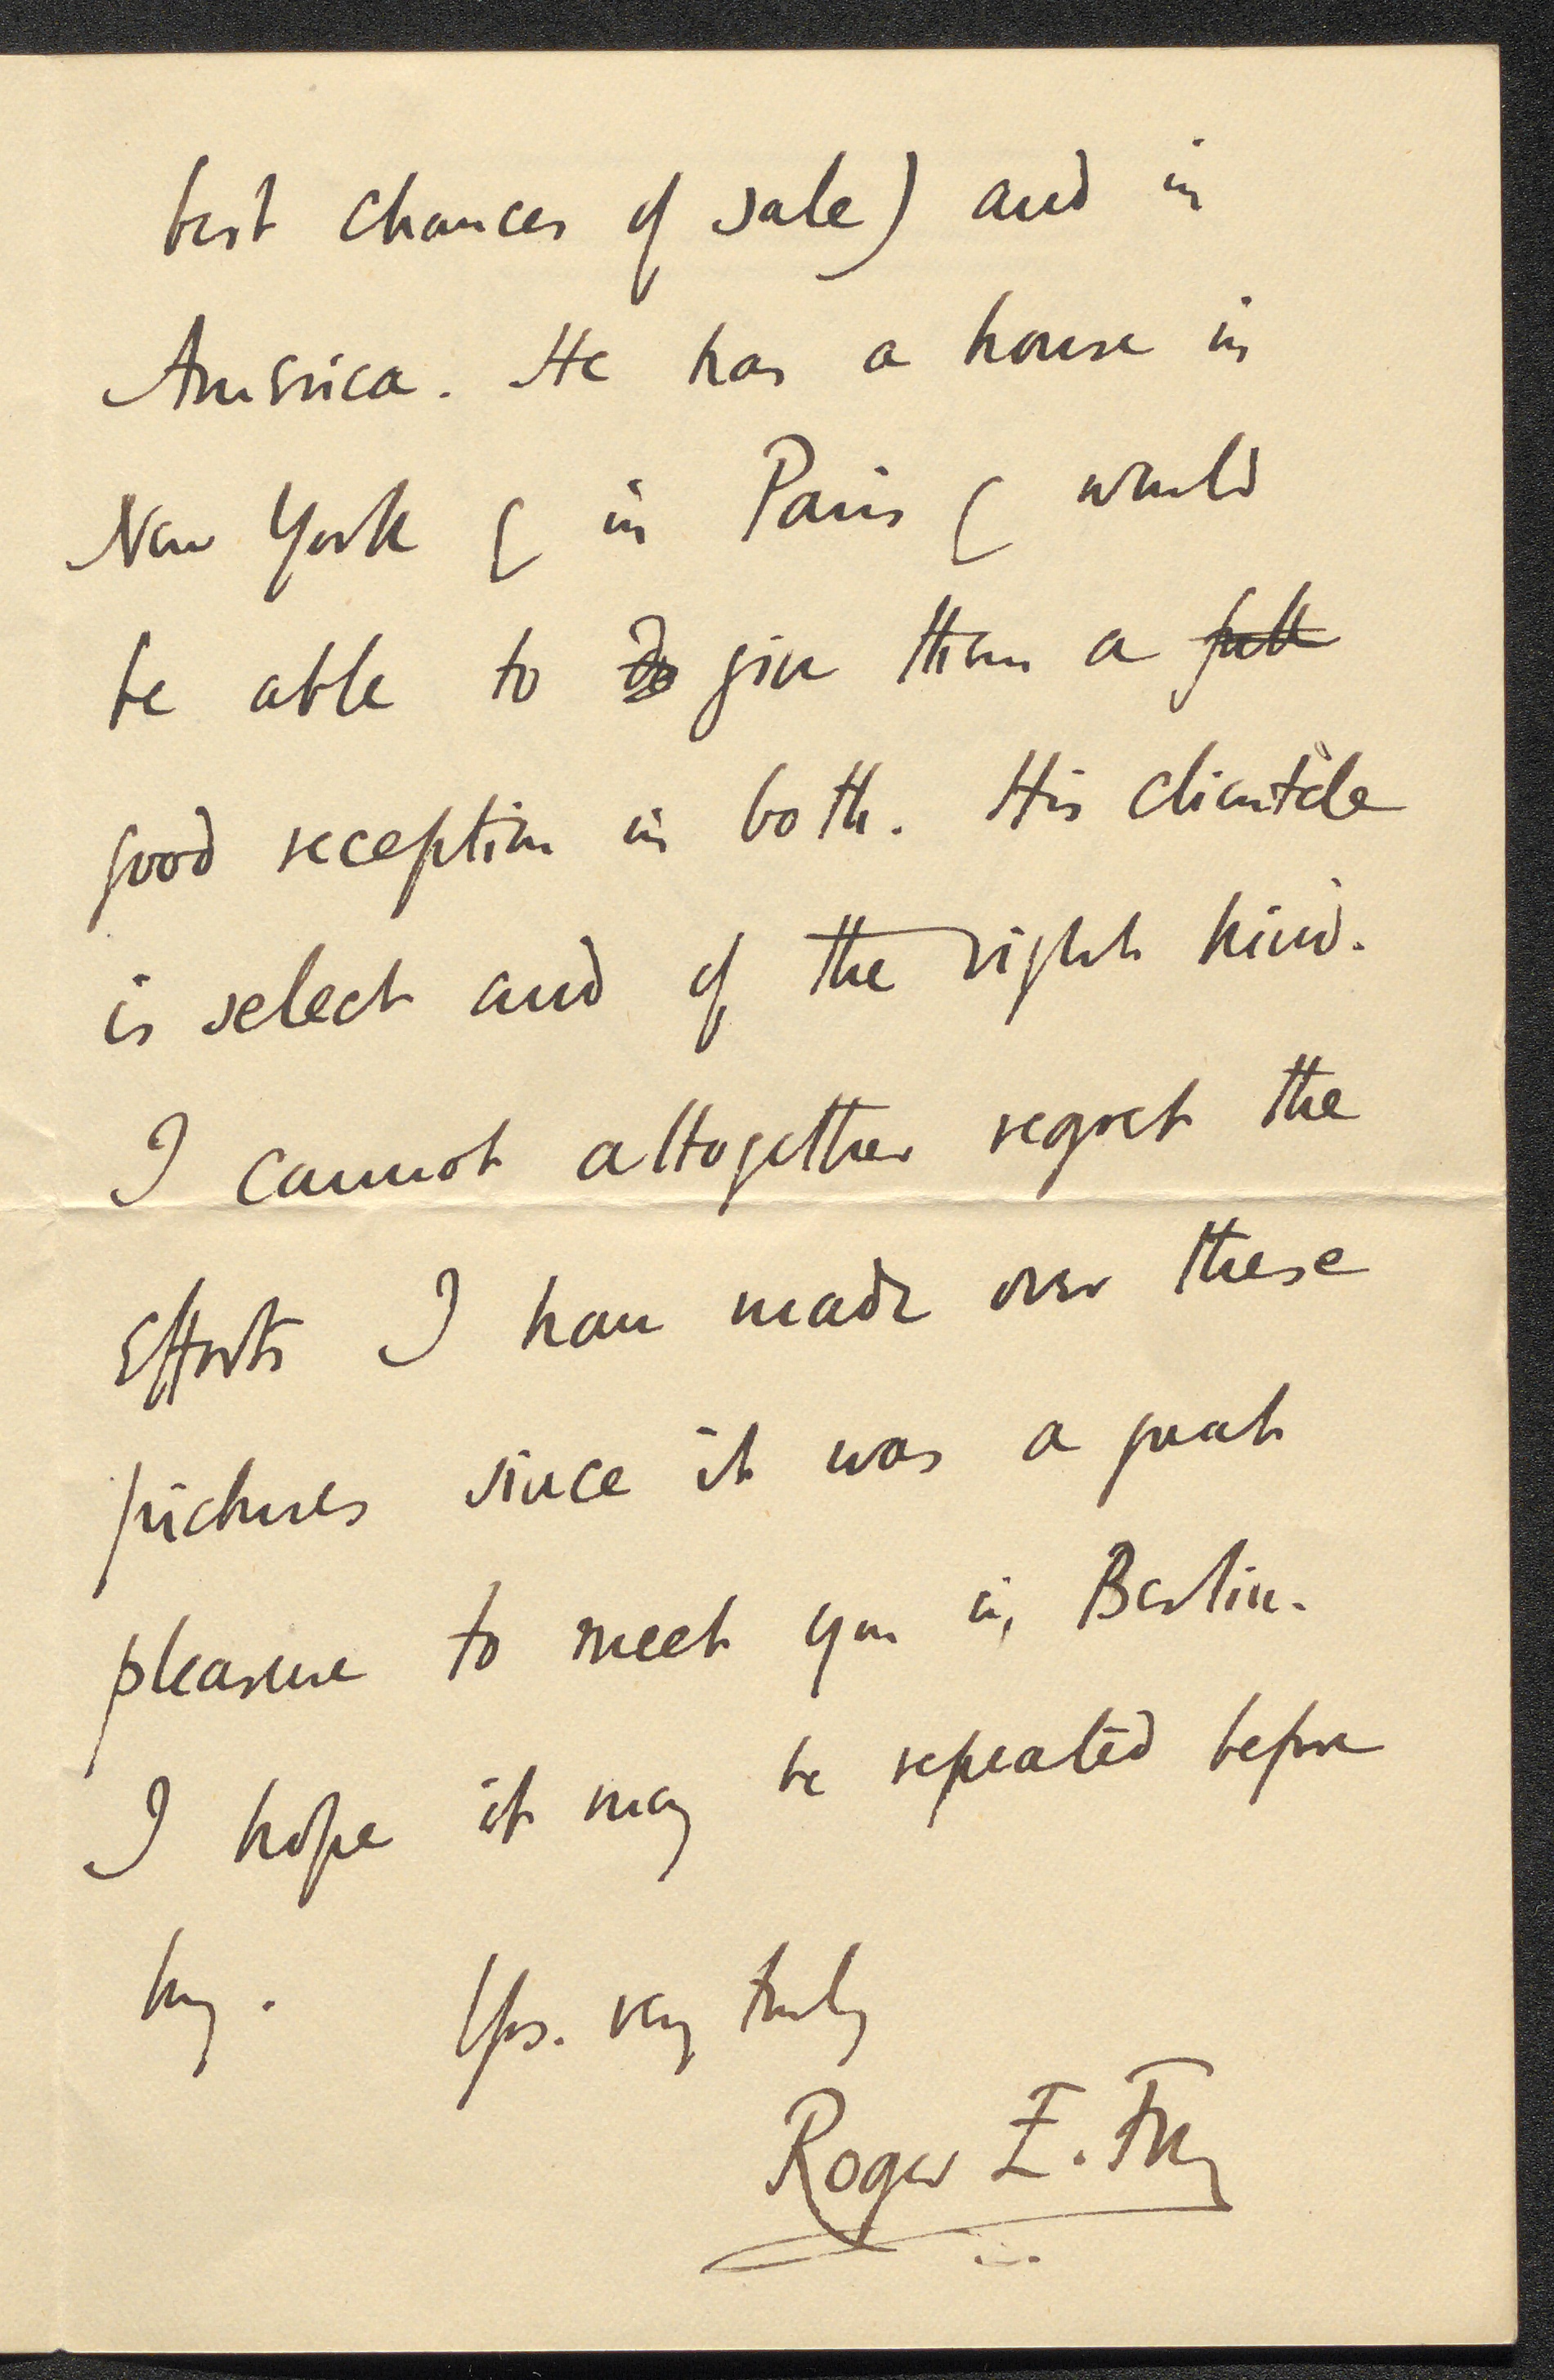 best chances of sale) and in
America. He has a house in
New York & in Paris & would
be able to do give them a
good reception in both. His clientèle
is select and of the right kind.
I cannot altogether regret the
Efforts I have made over these
pictures since it was a great
pleasure to meet you in Berlin.
I hope it may be repeated before
long. Yrs. very truly
Roger E. Fry